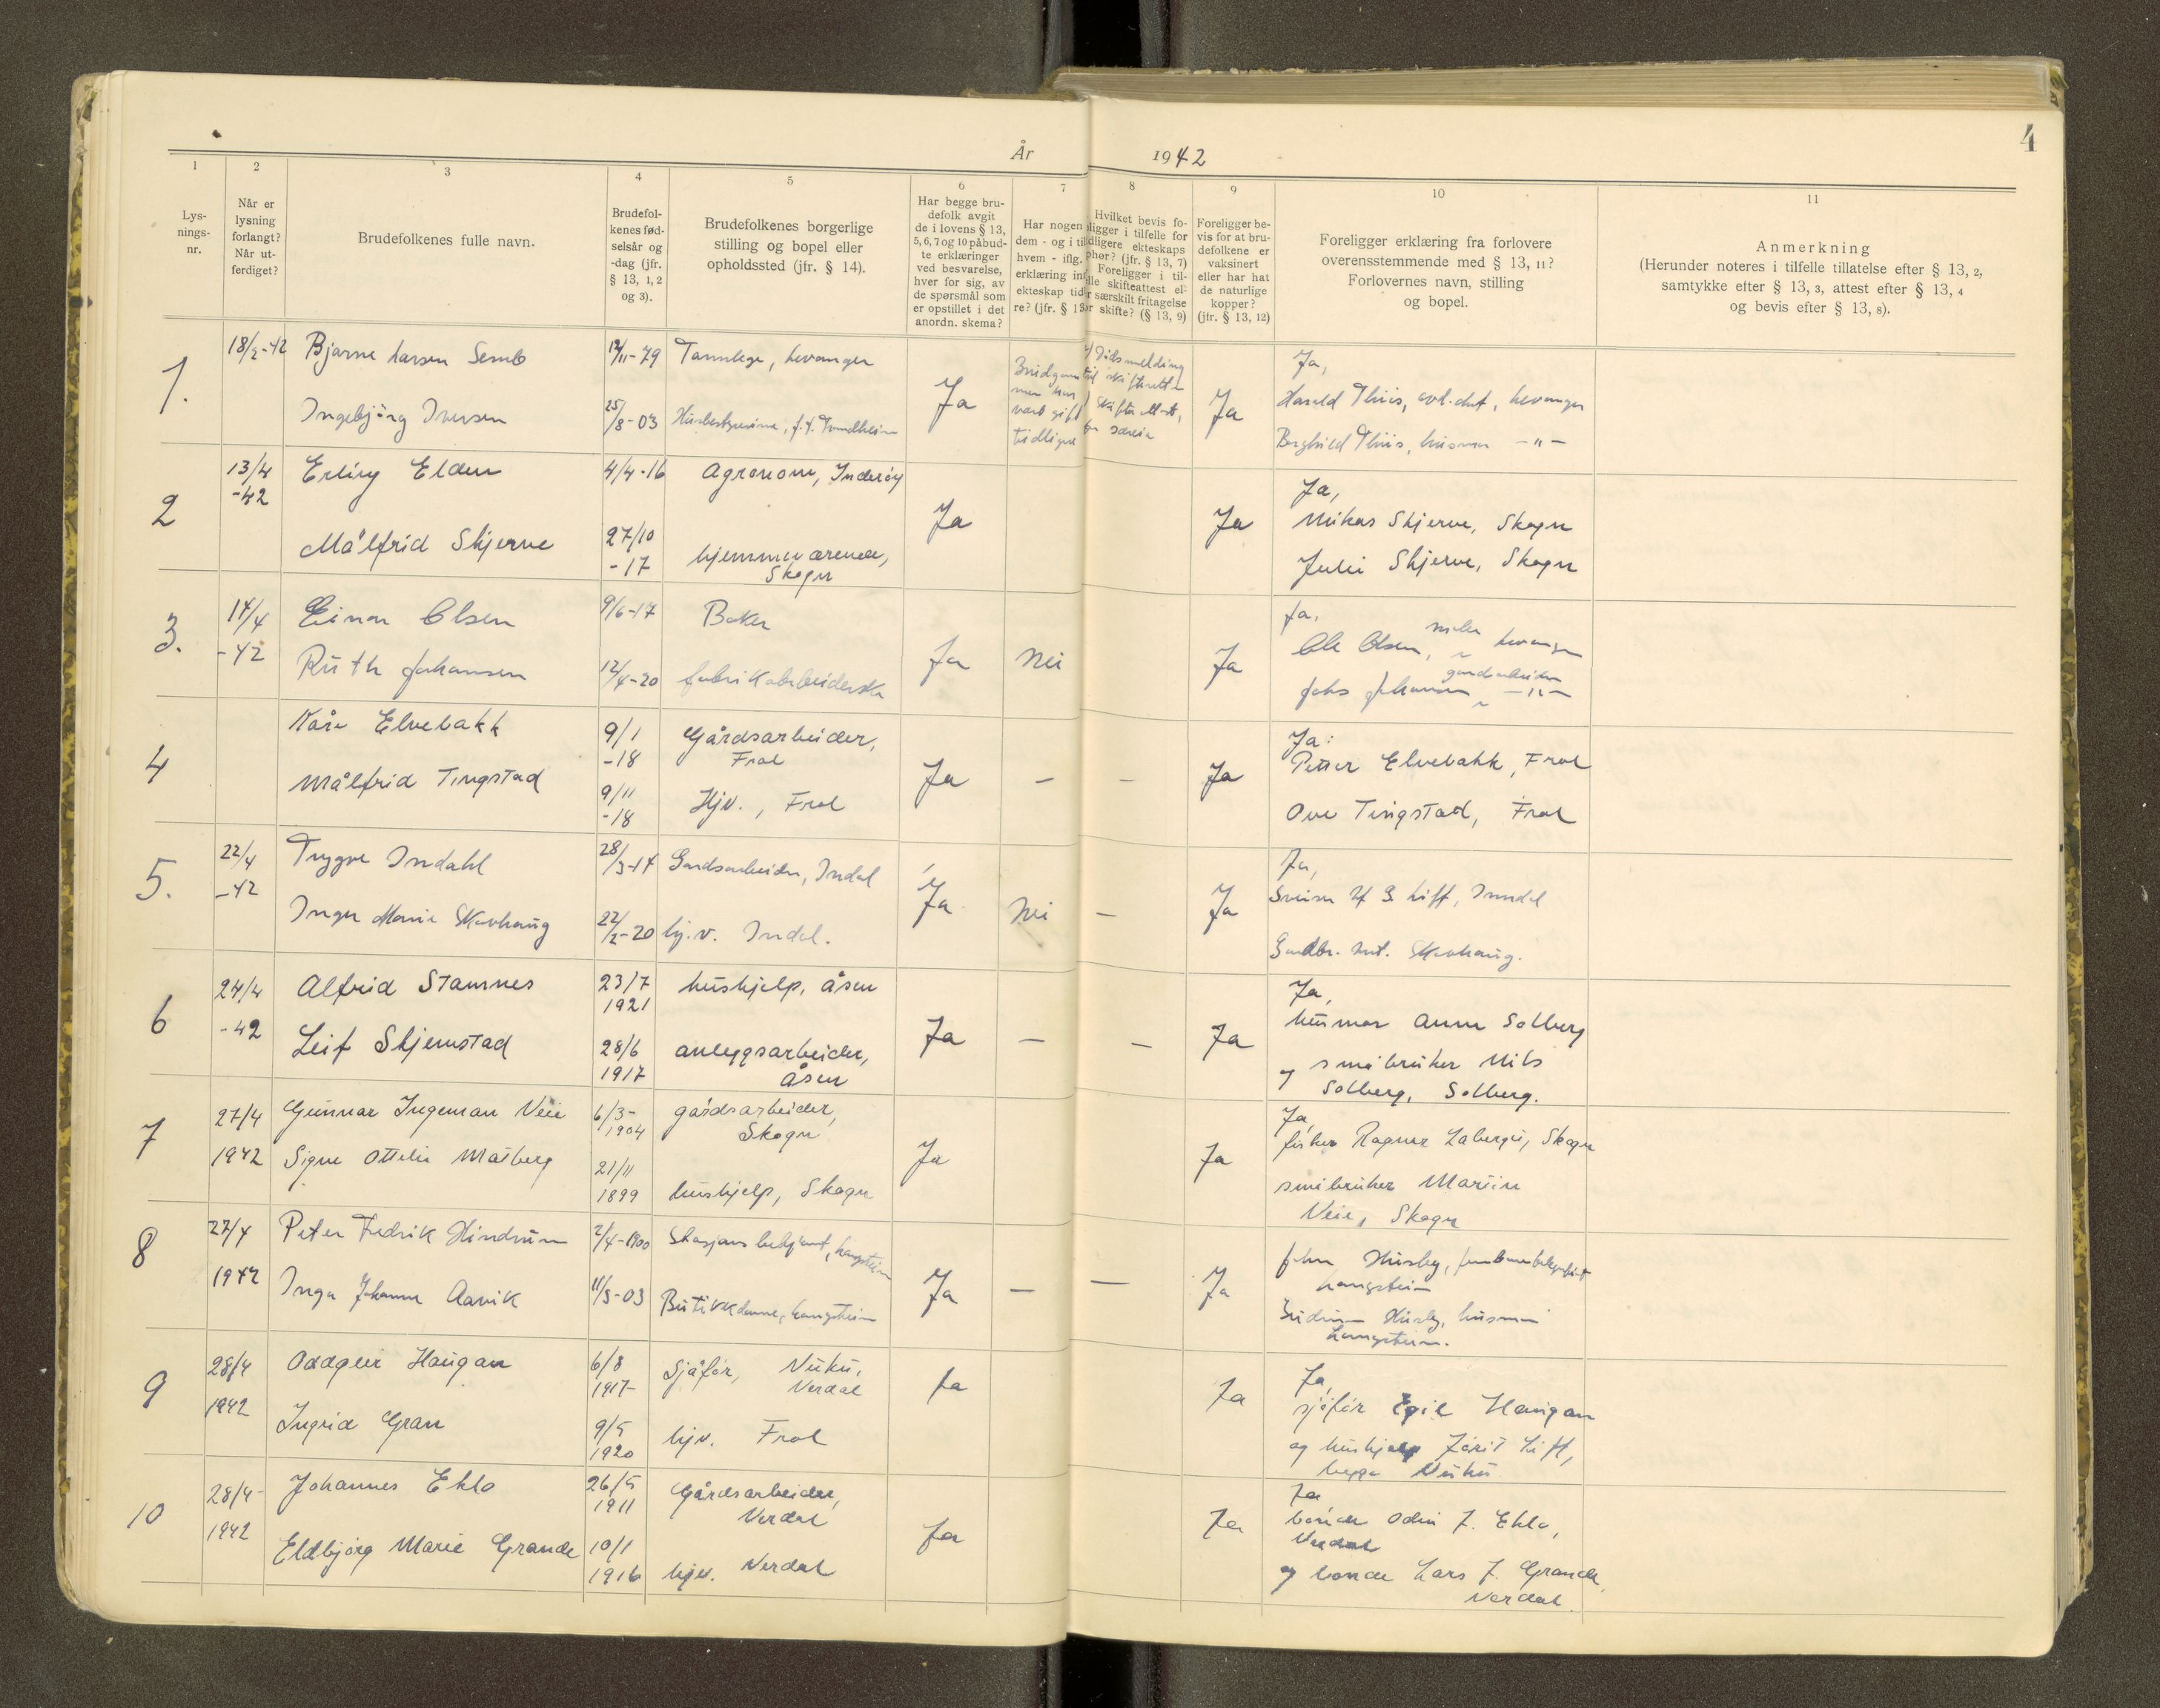 4
År 1942
1
2
3
4
5
6
7
8
9
10
11
Lys-
nings-
nr.
Når er
lysning
forlangt?
Når ut-
ferdiget?
Brudefolkenes fulle navn.
Brudefol-
kenes fød-
selsår og
-dag (jfr.
§ 13, 1, 2
og 3).
Brudefolkenes borgerlige
stilling og bopel eller
opholdssted (jfr. § 14).
Har begge bru-
defolk avgit
de i lovens § 13,
5, 6, 7 og 10 påbud-
te erklæringer
ved besvarelse,
hver for sig, av
de spørsmål som
er opstillet i det
anordn. skema?
Har nogen
dem - og i til
hvem - iflg.
erklæring in
ekteskap tid
re? (jfr. § 13
Hvilket bevis fo-
ligger i tilfelle for
dligere ekteskaps
phør? (jfr. § 13, 7)
Foreligger i til-
lle skifteattest el-
r særskilt fritagelse
or skifte? (§ 13, 9)
Foreligger be-
vis for at bru-
defolkene er
vaksinert
eller har hat
de naturlige
kopper?
(jfr. § 13, 12)
Foreligger erklæring fra forlovere
overensstemmende med § 13, 11?
Forlovernes navn, stilling
og bopel.
Anmerkning
(Herunder noteres i tilfelle tillatelse efter § 13, 2,
samtykke efter § 13, 3, attest efter § 13, 4
og bevis efter § 13, 8).
1.
18/2-42
Bjarne Larsen Semb
Ingebjörg Iversen
/11-79
25/8-03
Tannlege, Levanger
Husbestyrerinne, f.t. Trondheim
Ja
Brudgom
men har
vært gift
tidligere
Dødsmelding
til skifteretten
Skifteattest,
Ja
Ja,
Harald Thiis, Levanger
Borghild Thiis, husmor -"-
2
13/4
-42
Erling Elden
Målfrid Skjerve
4/4-16
27/10
-17
Agronom, Inderøy
hjemmeværende,
Skogn
Ja
Ja
Ja,
Skjerve, Skogn
Skjerve, Skogn
3.
17/4
-42
Einar Olsen
Ruth Johansen
9/6-17
12/4-20
Baker
fabrikkarbeiderske
Ja
Nei
Ja
Ja,
Ole Olsen, maler Levanger
Johansen gårdsarbeider -"-
4
Kåre Elvebakk
Målfrid Tingstad
9/1
-18
9/11
-18
Gårdsarbeider,
Frol
Hjv., Frol
Ja
-
-
Ja
Ja:
Petter Elvebakk, Frol
Ove Tingstad, Frol
5.
22/4
-42
Trygve Indahl
Inger Marie Skavhaug
28/3-17
22/2-20
Gardsarbeider, Indal
hj.v. Indal.
Ja
Nei
-
Ja
Ja,
Lift,
Skavhaug.
6
24/4
-42
Alfrid Stamnes
Leif Skjemstad
23/7
1921
28/6
1917
hushjelp, Åsen
anleggsarbeider,
Åsen
Ja
-
-
Ja
Ja,
husmor Anne Solberg
og småbruker Nils
Solberg, Solberg.
7
27/4
1942
Gunnar Ingeman Veie
Signe Ottelie Maiberg
6/3-
1904
21/11
1899
gårdsarbeider,
Skogn
hushjelp, Skogn
Ja
Ja
Ja,
fisker Ragnar Skogn
småbruker
Veie, Skogn
8
27/4
1942
Peter Fredrik Hindrum
Inga Johanne Aavik
2/4-1900
11/3-03
Stasjonsbetjent, Langstein
Butikkdame, Langstein
Ja
-
-
Ja
John Husby,
Langstein
Husby, husmor
Langstein.
9
28/4
1942
Oddgeir Haugan
Ingrid Gran
6/8
1917
9/5
1920
Sjåfør, Vuku,
Verdal
hjv. Frol
Ja
Ja
Ja,
sjåfør Egil Haugan
og hushjelp Lift,
begge Vuku
10
28/4-
1942
Johannes Eklo
Eldbjørg Marie Grande
26/5
1911
10/1
1916
Gårdsarbeider,
Verdal
hjv. Verdal
Ja
Ja
Ja
bonde Odin J. Eklo,
Verdal
og bonde Lars J. Grande,
Verdal.